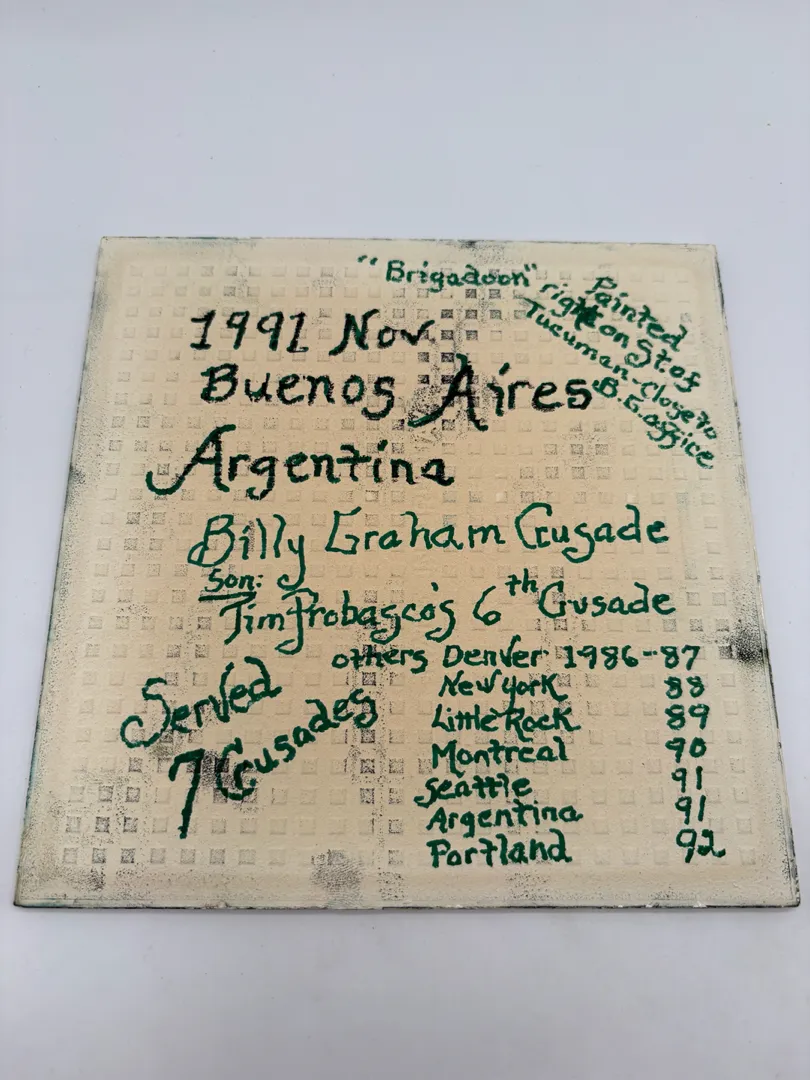 "Brigadoon"
Painted
right on St of
Tucuman - Close to
B.G. office
1991 Nov.
Buenos Aires
Argentina
Billy Graham Crusade
Son:
Tim Probasco's 6th Crusade
others Denver 1986-87
New York 88
Little Rock 89
Montreal 90
Seattle 91
Argentina 91
Portland 92
Served
7 Crusades